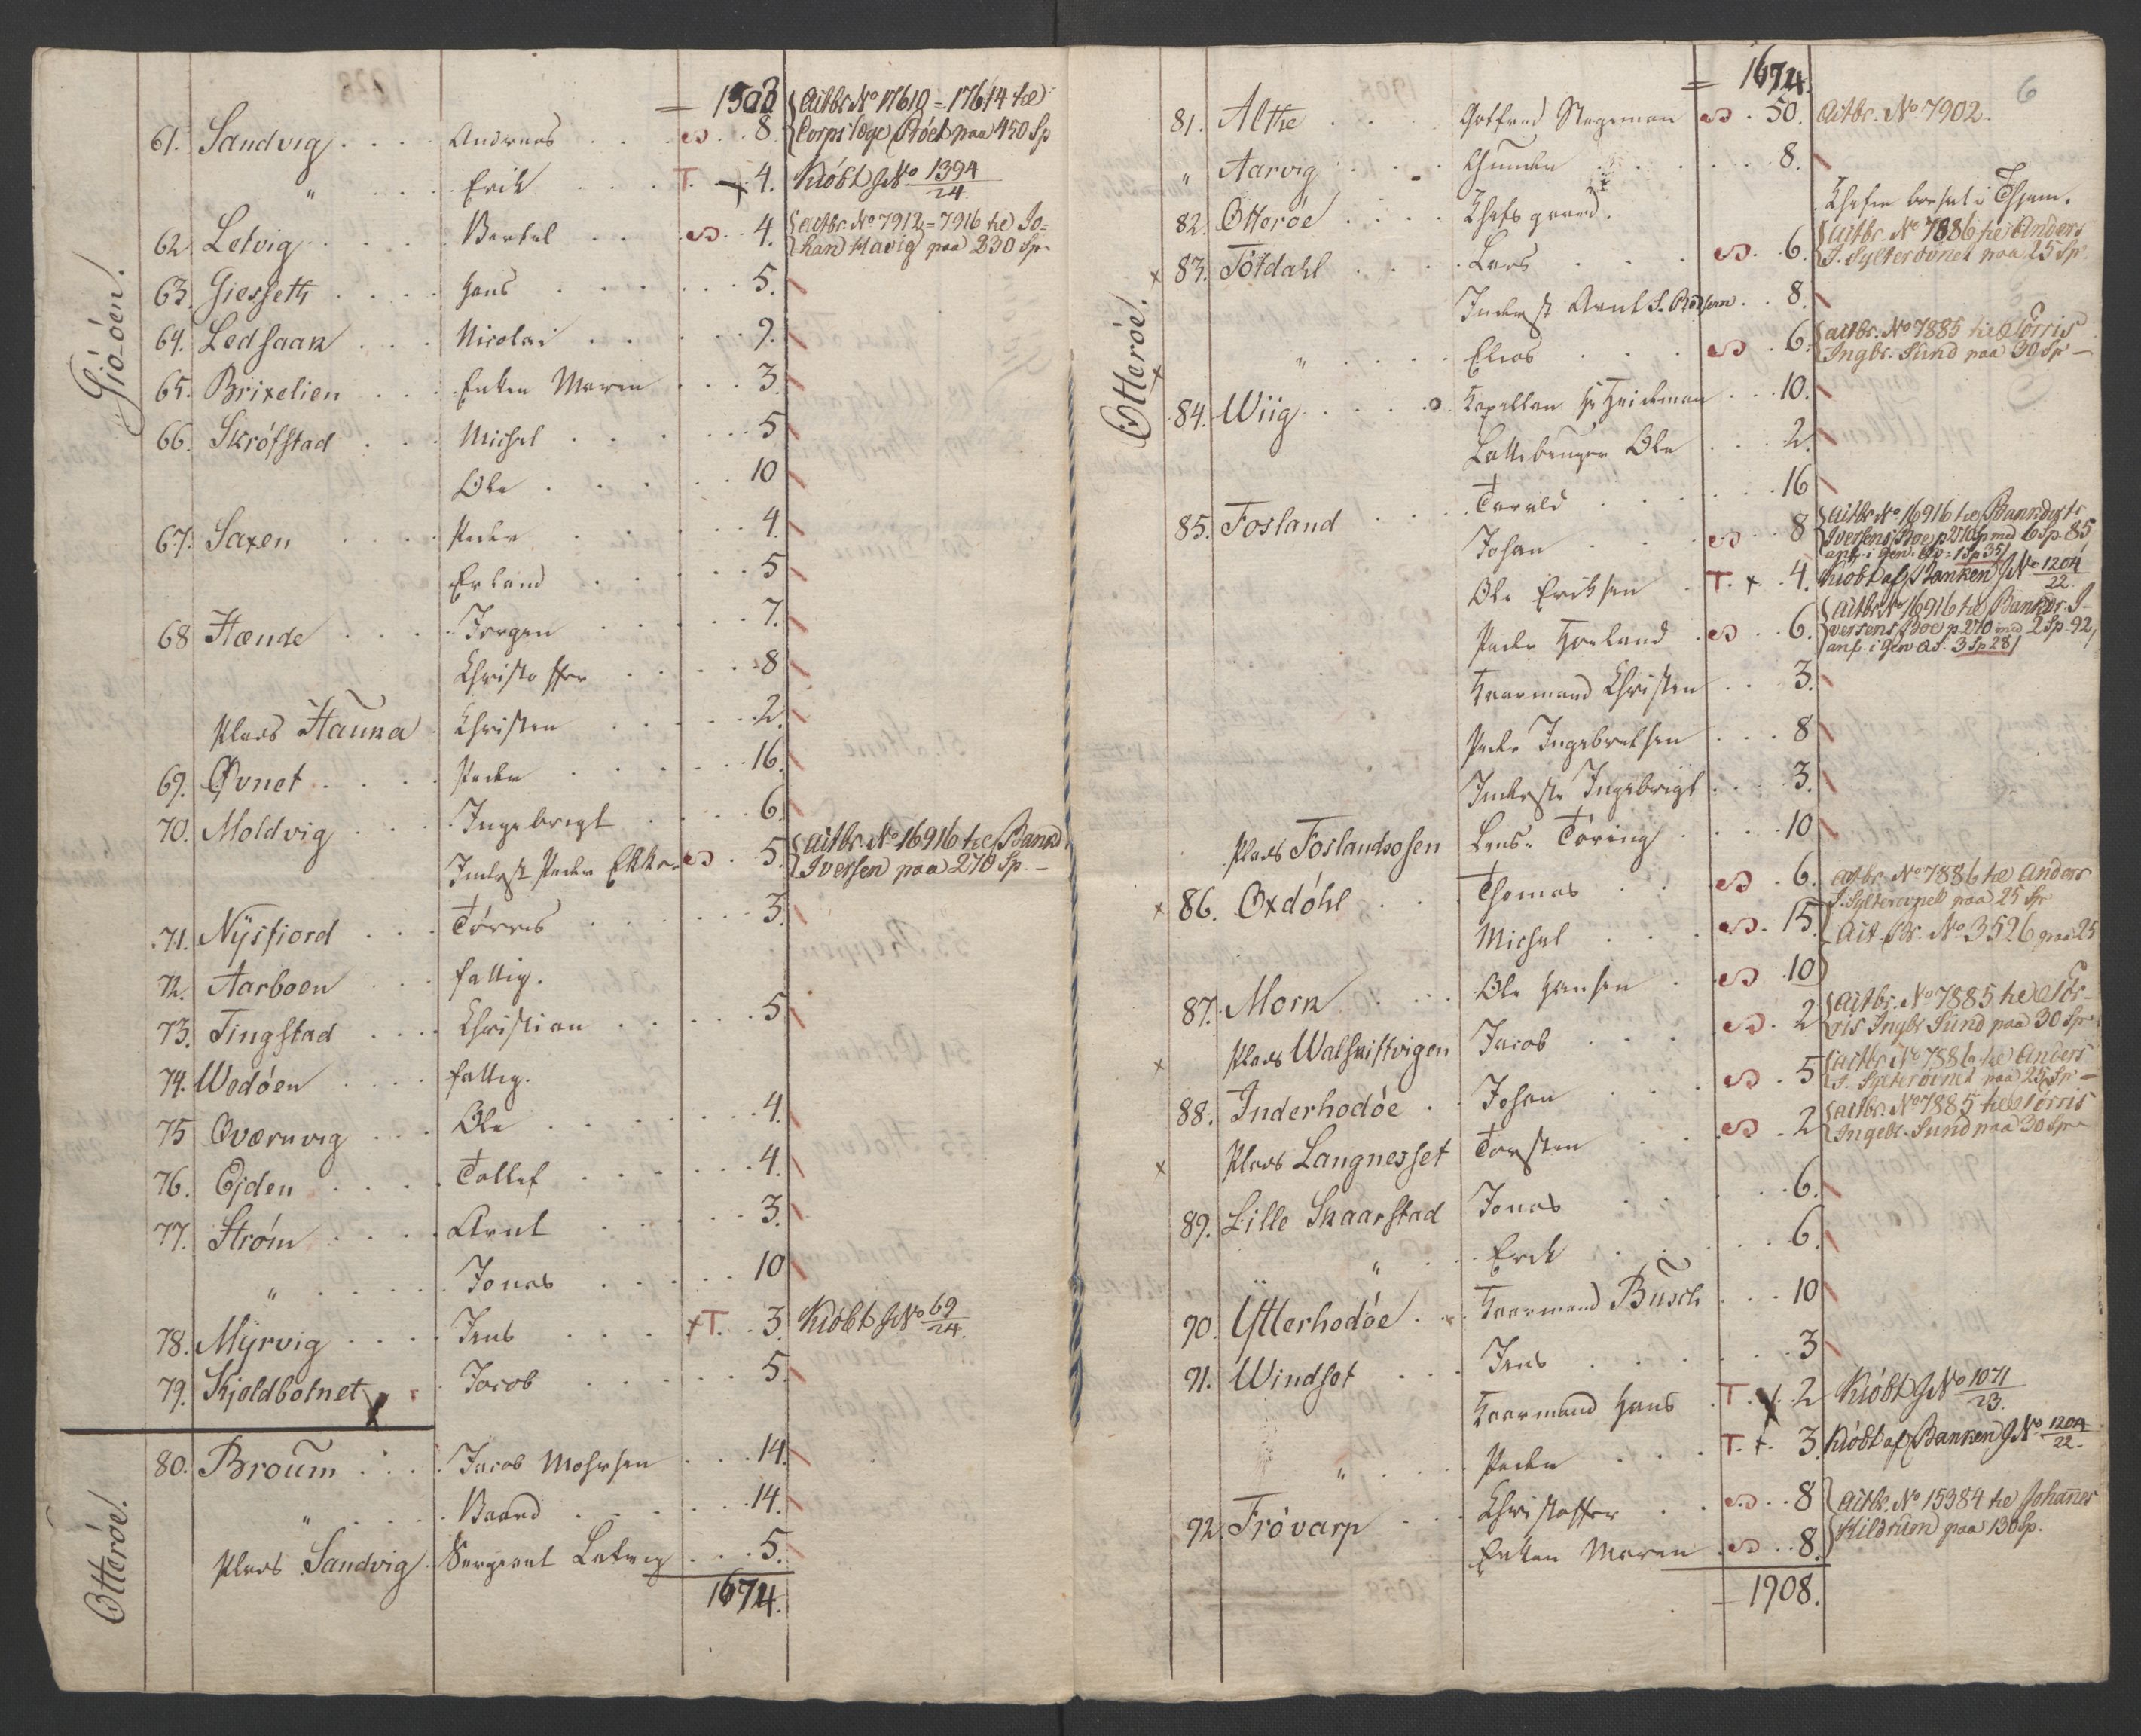 Giö-öen.
= 1503
61. Sandvig . . . . Andreas . . . 8. Aitbr. No 17610 = 17614 til
Corpslæge Bröch paa 450 Sp
" . . . Erik . . . T. + 4. Kiöbt J No 1394/24
62. Letvig . . . Bertel . . . 4. Aitbr. No 7912 = 7916 til Jo=
han Havig paa 230 Sp.
63. Giesseth . . . . Hans . . . 5.
64. Ledsaak . . . Nicolai . . . 9.
65. Brixelien . . . Enken Maren . . . 3.
66. Skröfstad . . . Michel . . . 5
Ole . . . 10
67. Saxen . . . Peder . . . 4.
Erland . . . 5
68 Hænde . . . Jörgen . . . 7.
Christoffer . . . 8
Plads Hauka . Christen . . . 2.
69. Øvnet . . . . Peder . . . 16.
70. Moldvig . . . Ingebrigt . . . 6.
Inderst Peder Ekker . 5. Aitbr. No 16916 til Bankd
Iversen paa 270 Sp. –
71. Nÿsfiord . . . Törres . . . 3.
72. Aarboen . . . fattig.
73. Tingstad . . . . Christian . . . 5
74. Wedöen . . . . fattig.
75 Qværnvig . . . Ole . . . 4.
76. Ejden . . . . Tollef . . . 4.
77. Ström . . . . Arnt . . . 3.
" . . . . Jonas . . . 10
78. Mÿrvig . . . . Jens . . . +T. . 3. Kiöbt J No 69/24.
79. Skjeldbotnet Jacob . . . 5.
Otteröe.
80. Broum . . . Jacob Mohrsen . . . 14.
" . . . Baard . . . 14.
Plads Sandvig . Sergeant Letvig . . . 5.
1674.
6
Otteröe.
= 1674.
81. Alte . . . . Gotfred Stegeman . 50. Aitbr. No 7902
" Aarvig . . . . Gunder . . . 8.
82. Otteröe . . . . Chefs gaard. Chefen boesat i Thjem.
+ 83. Tötdahl . . . . Lars . . . 6. Aitbr. No 7886 til Anders
J. Sylterövnet paa 25 Sp.
Inderst Arnt S. Rödsem . . 8.
" . . . . Elias . . . 6. Aitbr. No 7885 til Törris
Ingbr. Sund paa 30 Sp –
+ 84. Wiig . . . . o. Kapellan Hr Heideman . . . 10.
Ole . . . 2.
85. Fosland . . . . Torald . . . 16
Johan . . . 8 Aitbr. No 16916 til Bankdist:
Iversens Boe p. 270 Sp med 6 Sp. 85
anf. i Gen. Qv = 1 Sp 35/
Ole Eriksen . T. + . 4. Kiöbt af Banken J No 1204/22.
Peder Horland . 6. Aitbr. No 16916 til Bankdr. I-
versens Boe p. 270 med 2 Sp. 92,
anf. i Gen Q.v. 3 Sp 28/
Kaarmand Christen . . 3.
Peder Ingebretsen . . . 8
Inderste Ingebrigt . . . 3.
Plads Foslandsosen Lens. Töring . . . 10
+ 86. Oxdöhl . . . Thomas . . . 6. Aitbr. No 7886 til Anders
J. Sylterövnet paa 25 Sp
Michel . . . 15. Ait. br. No 3526 paa 25
87. Mork . . . Ole Hansen . 10
+ Plads Walskiftvigen Jacob . . . 2 Aitbr. No 7885 til Tör-
ris Ingbr Sund paa 30 Sp.
88. Inderhodöe . . Johan . . . 5 Aitbr. No 7886 til Anders
J. Sylterövnet paa 25 Sp –
+ Plads Langnesset Torsten . . . 2 Aitbr. No 7885 til Törris
Ingebr. Sund paa 30 Sp
89. Lille Skaarstad Jonas . . . 6.
" . . Erik . . . 6.
90. Ytterhodöe . . . Kaarmand Busch . . . 10
91. Windset . . . Jens . . . 3
Kaarmand Hans . T. + 2 Kiöbt J No 1071/23.
" . . . . Peder . . . T. +. 3. Kiöbt af Banken J No 1204/22.
92. Frövarp . . . Christoffer . . 8 Aitbr. No 15384 til Johanes
Kildrum paa 130 Sp.
Enken Maren . 8.
1908.